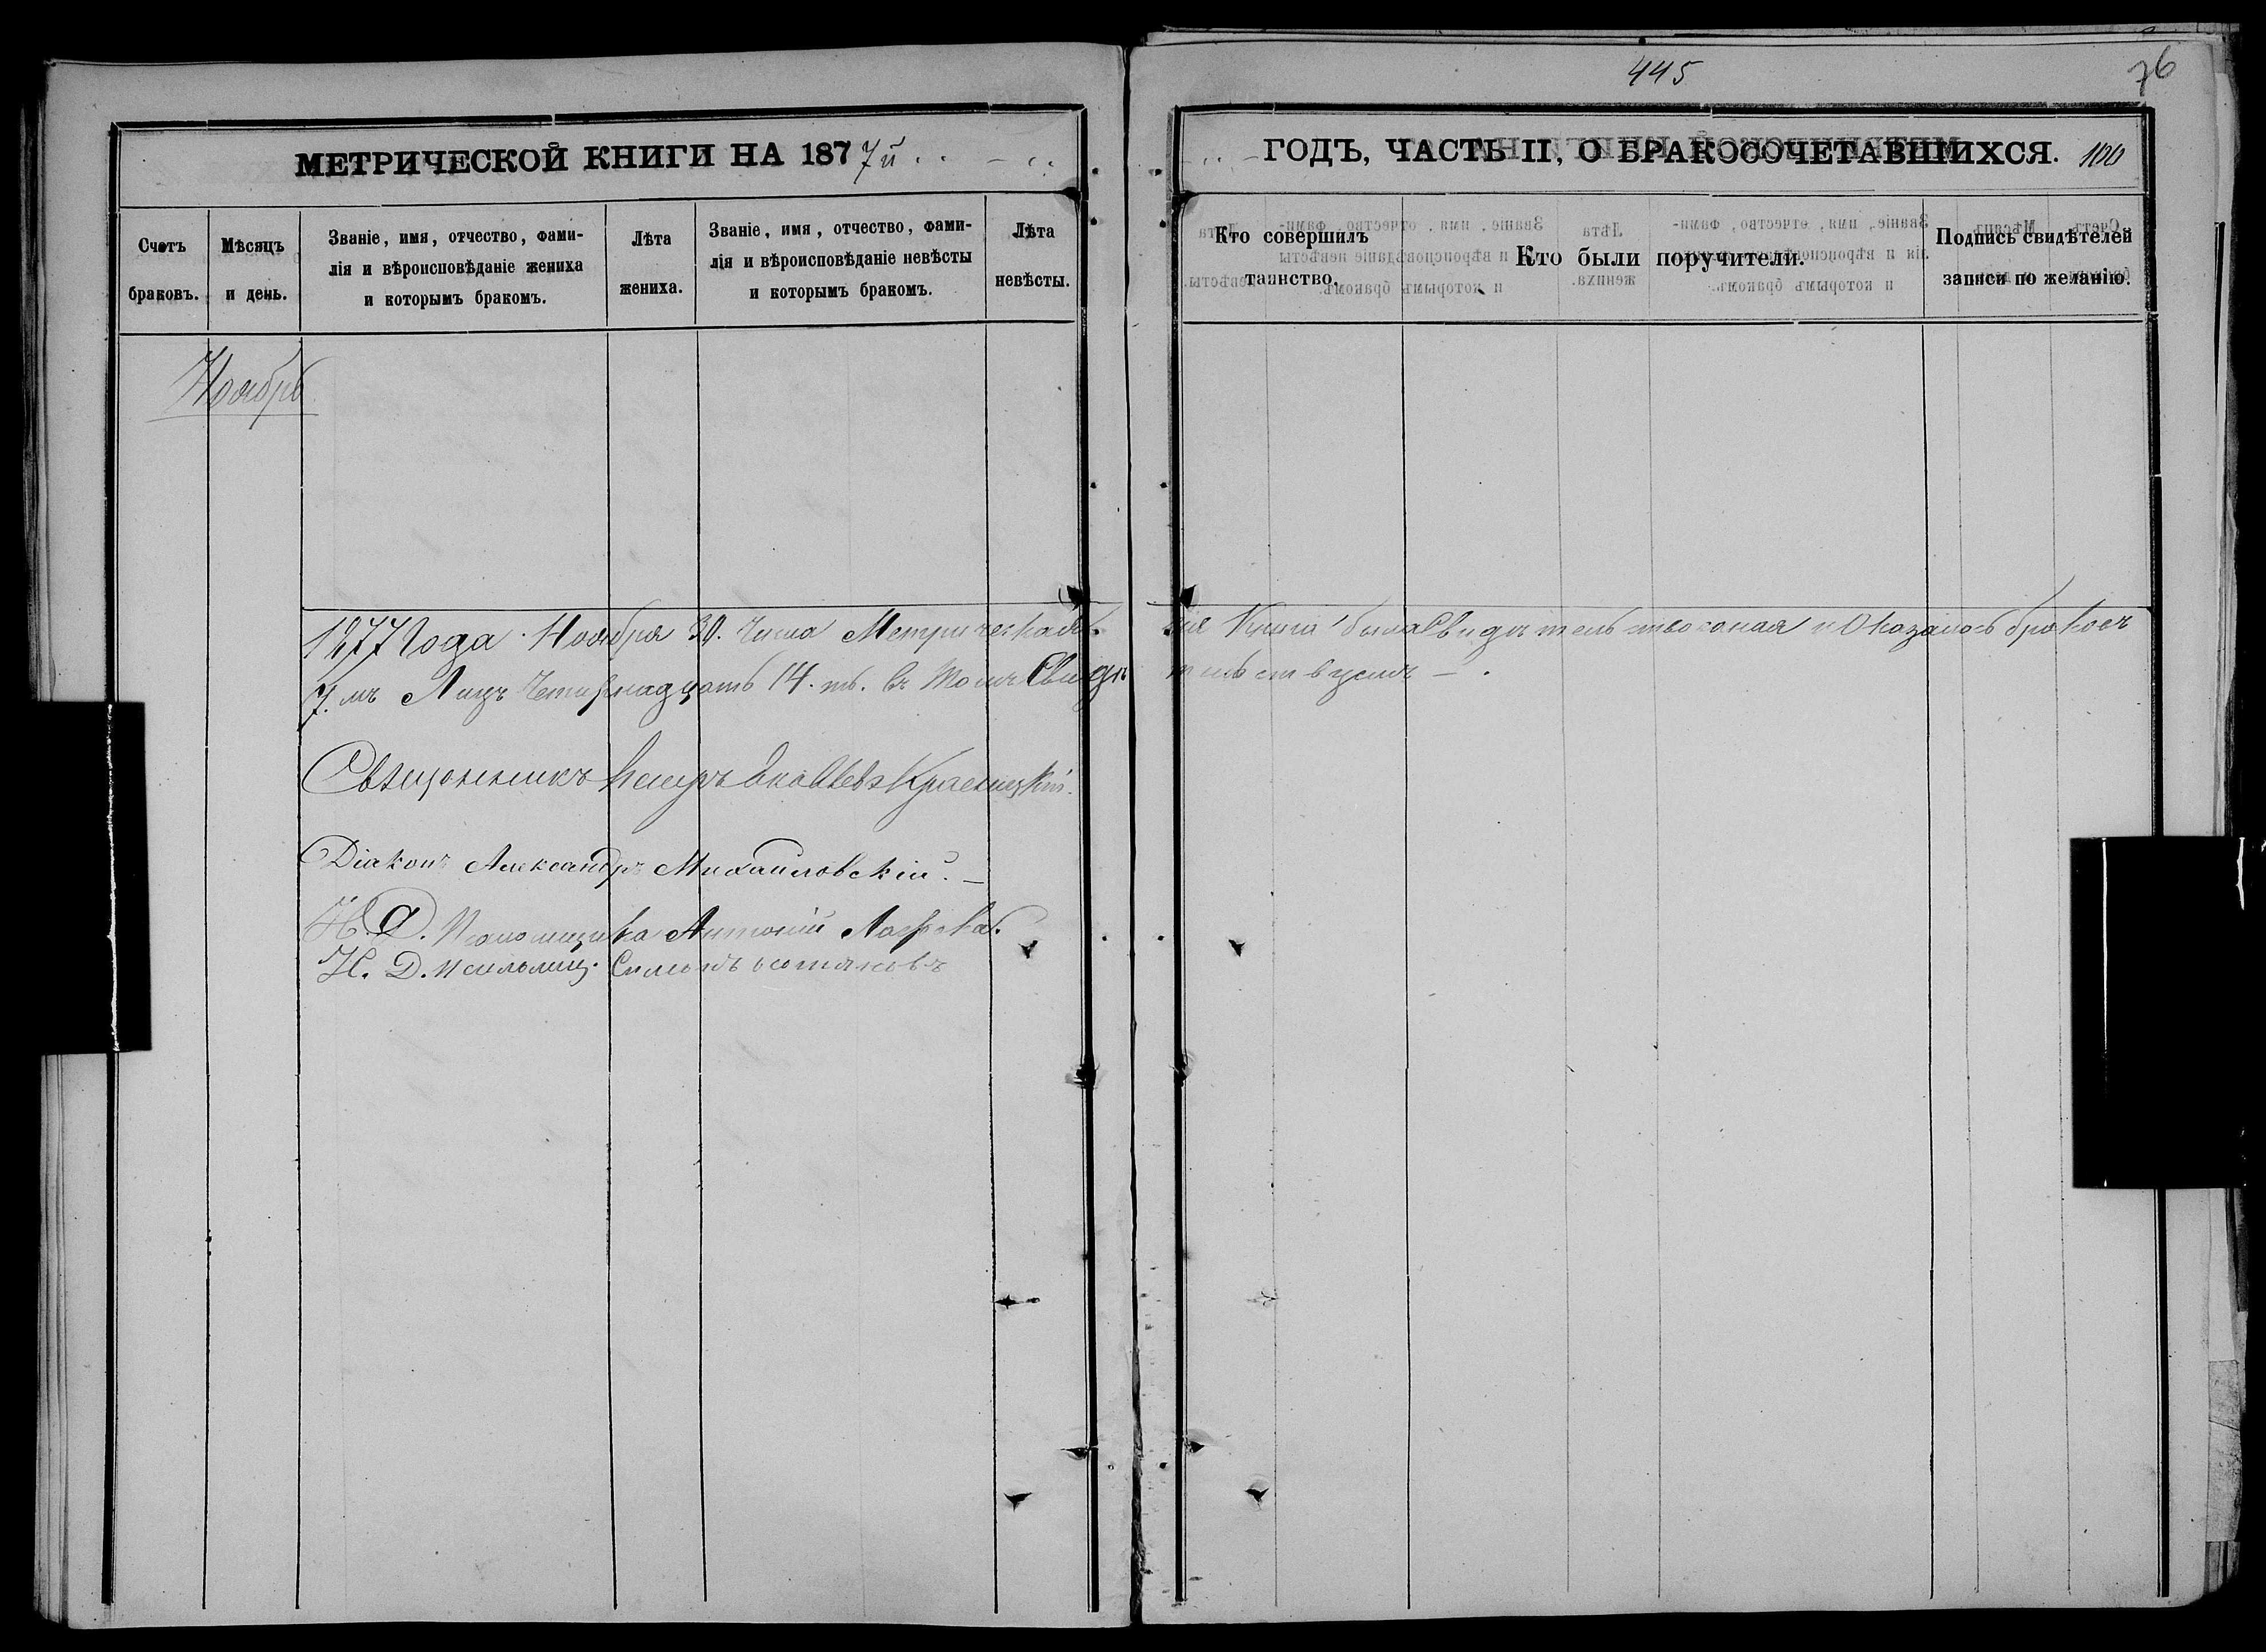 445
76
МЕТРИЧЕСКОЙ КНИГИ НА 1877й
ГОДЪ, ЧАСТЬ II, О БРАКОСОЧЕТАВШИХСЯ. 100
Счетъ браковъ.
Мѣсяцъ и день.
Званіе, имя, отчество, фами-
лія и вѣроисповѣданіе жениха
и которымъ бракомъ.
Лѣта
жениха.
Званіе, имя, отчество, фами-
лія и вѣроисповѣданіе невѣсты
и которымъ бракомъ.
Лѣта
невѣсты.
Кто совершилъ
таинство.
Кто были поручители.
Подпись свидѣтелей
записи по желанію.
Ноябрь
1877 Года Ноября 30. Числа Метрическая Книга была Свидѣтельствованая и Оказалось браковъ
7. мъ Лицъ Четирнадцать 14. ть. Въ Томъ Свидѣтельствуемъ
Священникъ Петръ Красницкій.
Діаконъ Александръ Михайловскій.
И. Д. Псаломщика Антоній
И. Д. Псаломщ.